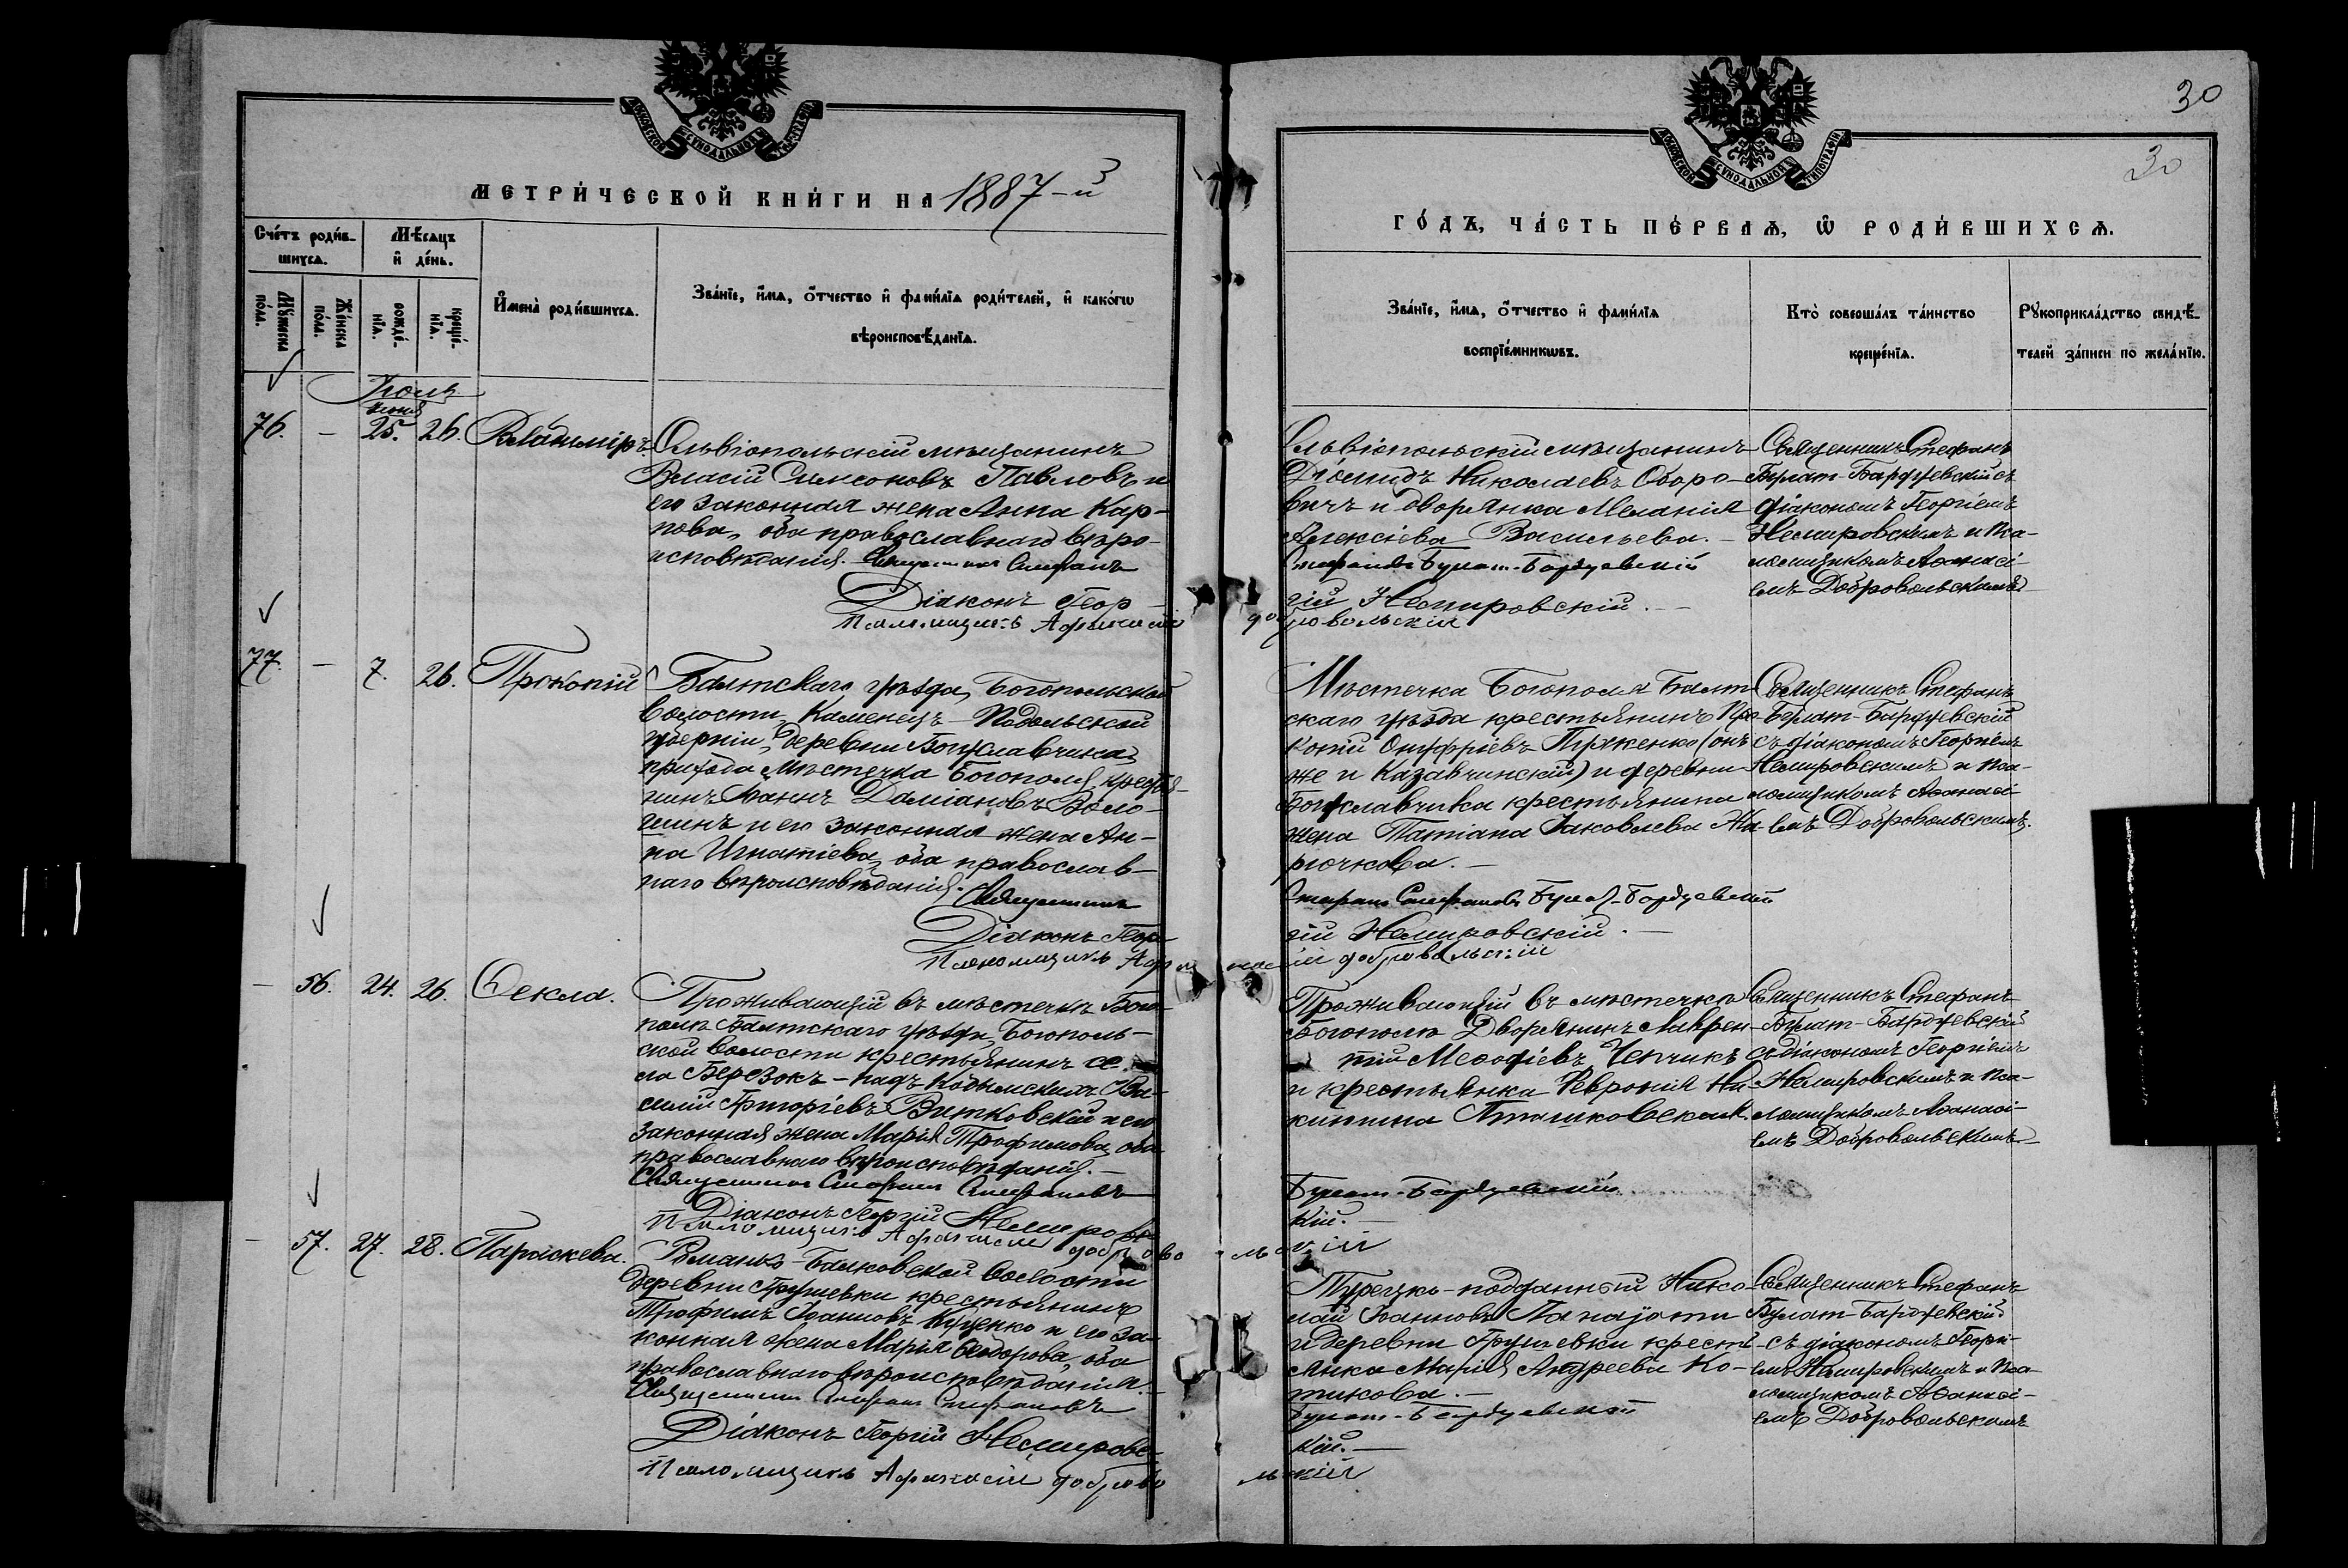 30
30
МОСКОВСКОЙ СѴНОДАЛЬНОЙ ТѴПОГРАФІИ
МЕТРИ́ЧЕСКОЙ КНИ́ГИ НА 1887-й
Сче́тъ роди́в-
шихсѧ.
Мѣ́сѧцъ
и҆ де́нь.
Мꙋ́жеска
по́ла.
Же́нска
по́ла.
рожде́-
нїѧ.
креще́-
нїѧ.
И҆мена̀ роди́вшихсѧ.
Зва́нїе, и҆́мѧ, ѻ҆́тчество и҆ фами́лїѧ роди́телей, и҆ како́гѡ
вѣроисповѣ́данїѧ.
Іюль
Іюня
76.
-
25.
26.
Владиміръ.
Ольвіопольскій мѣщанинъ
Власій Симеоновъ Павловъ и
его законная жена Анна Кар-
пова, оба православнаго вѣро-
исповѣданія. Священникъ Стефанъ
Діаконъ Геор-
Псаломщикъ Афанасій
77.
-
7.
26.
Прокопій
Балтскаго уѣзда, Богопольской
волости, Каменецъ-Подольской
губерніи, деревни Богуславчика,
прихода мѣстечка Богополя, крестья-
нинъ Іоаннъ Даміановъ Воло-
шинъ и его законная жена Ан-
на Игнатіева, оба православ-
наго вѣроисповѣданія.
Священникъ
Діаконъ Геор-
Псаломщикъ Афа
-
56.
24.
26.
Ѳекла.
Проживающій въ мѣстечкѣ Бого-
полѣ Балтскаго уѣзда, Богополь-
ской волости крестьянинъ се-
ла Березокъ-надъ Кодымскихъ Ва-
силій Григоріевъ Витковскій и его
законная жена Марія Трофимова, оба
православнаго вѣроисповѣданія.-
Священникъ Стефанъ Стефановъ
Діаконъ Георгій Немировс
Псаломщикъ Афанасій доброво
-
57.
27.
28.
Параскева.
Романко-Балковской волости
деревни Грушевки крестьянинъ
Трофимъ Іоанновъ Куценко и его за-
конная жена Марія Ѳедорова, оба
православнаго вѣроисповѣданія.-
Священникъ Стефанъ Стефановъ
Діаконъ Георгій Немировс-
Псаломщикъ Афанасій доброво
МОСКОВСКОЙ СѴНОДАЛЬНОЙ ТѴПОГРАФІИ
ГО́ДЪ, ЧА́СТЬ ПЕ́РВАѦ, Ѽ РОДИ́ВШИХСѦ.
Зва́нїе, и҆́мѧ, ѻ҆́тчество и҆ фами́лїѧ
воспрїе́мникѡвъ.
Кто̀ соверша́лъ та́инство
креще́нїѧ.
Рꙋкоприкла́дство свидѣ́-
телей за́писи по жела́нїю.
Ольвіопольскій мѣщанинъ
Діомидъ Николаевъ Оборо-
вичъ и дворянка Меланія
Алексіева Васильева.-
Стефановъ Булат-Бардуевскій
гій Немировскій.-
добровольскій
Священникъ Стефанъ
Булат-Бардуевскій съ
діакономъ Георгіемъ
Немировскимъ и пса-
ломщикомъ Аѳанасі-
емъ Добровольскимъ
Мѣстечка Богополя Балт-
скаго уѣзда крестьянинъ Про-
копій Онуфріевъ Пряженко (онъ
же и Казавчинскій) и деревни
Богуславчика крестьянина
жена Татіана Іаковлева Жа-
рючкова.-
Стефанъ Стефановъ Булат-Бардуевскій
гій Немировскій.-
насій добровольскій
Священникъ Стефанъ
Булат-Бардуевскій
съ діакономъ Георгіемъ
Немировскимъ и пса-
ломщикомъ Аѳанасі-
емъ Добровольскимъ.
Проживающій въ мѣстечкѣ
Богополѣ Дворянинъ Лаврен-
тій Меѳодіевъ Чепчикъ
и крестьянка Февронія Ни-
китина Пташковская.
Булат-Бардуевскій
кій.-
льскій
Священникъ Стефанъ
Булат-Бардуевскій
съ діакономъ Георгіемъ
Немировскимъ и пса-
ломщикомъ Аѳанасі-
емъ Добровольскимъ
Турецко-подданный Нико-
лай Іоанновъ Панаіоти
и деревни Грушевки кресть-
янка Марія Андреева Ко-
тикова.-
Булат-Бардуевскій
кій.-
льскій
Священникъ Стефанъ
Булат-Бардуевскій
съ діакономъ Георгі-
емъ Немировскимъ и пса-
ломщикомъ Аѳанасі-
емъ Добровольскимъ